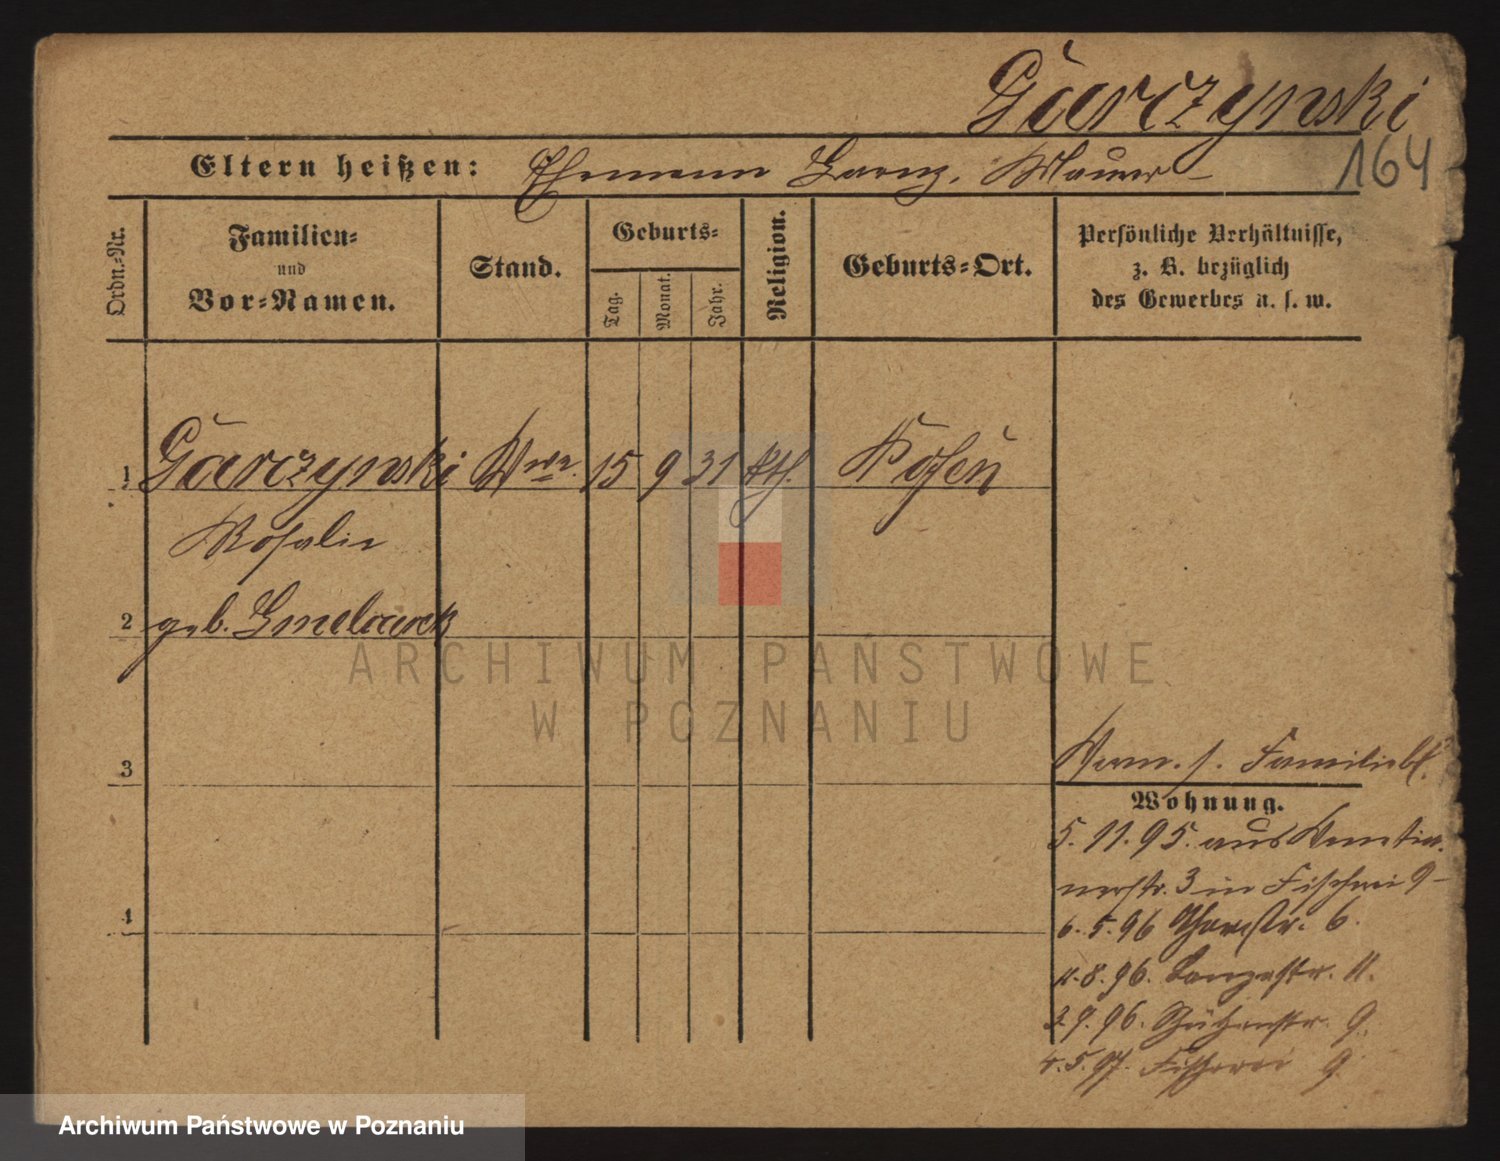 Garczynski
164
Eltern heißen: Ehemann Lorenz, Maurer
Ordn.-Nr.
Familien-
und
Vor-Namen.
Stand.
Geburts-
Tag.
Monat.
Jahr.
Religion.
Geburts-Ort.
Persönliche Verhältnisse,
z. B. bezüglich
des Gewerbes u. s. w.
1 Garczynski Wwe. 15 9 31 kth. Posen
Rosalie
2 geb.
3
4
Verm. s. Familienbl.
Wohnung.
5. 11. 95. aus Venetia-
nerstr. 3 in Fischerei 9
6. 5. 96 6.
11. 8. 96. Langestr. 11.
2. 9. 96. Schützenstr. 9.
4. 5. 97. Fischerei 9
ARCHIWUM PAŃSTWOWE
W POZNANIU
Archiwum Państwowe w Poznaniu